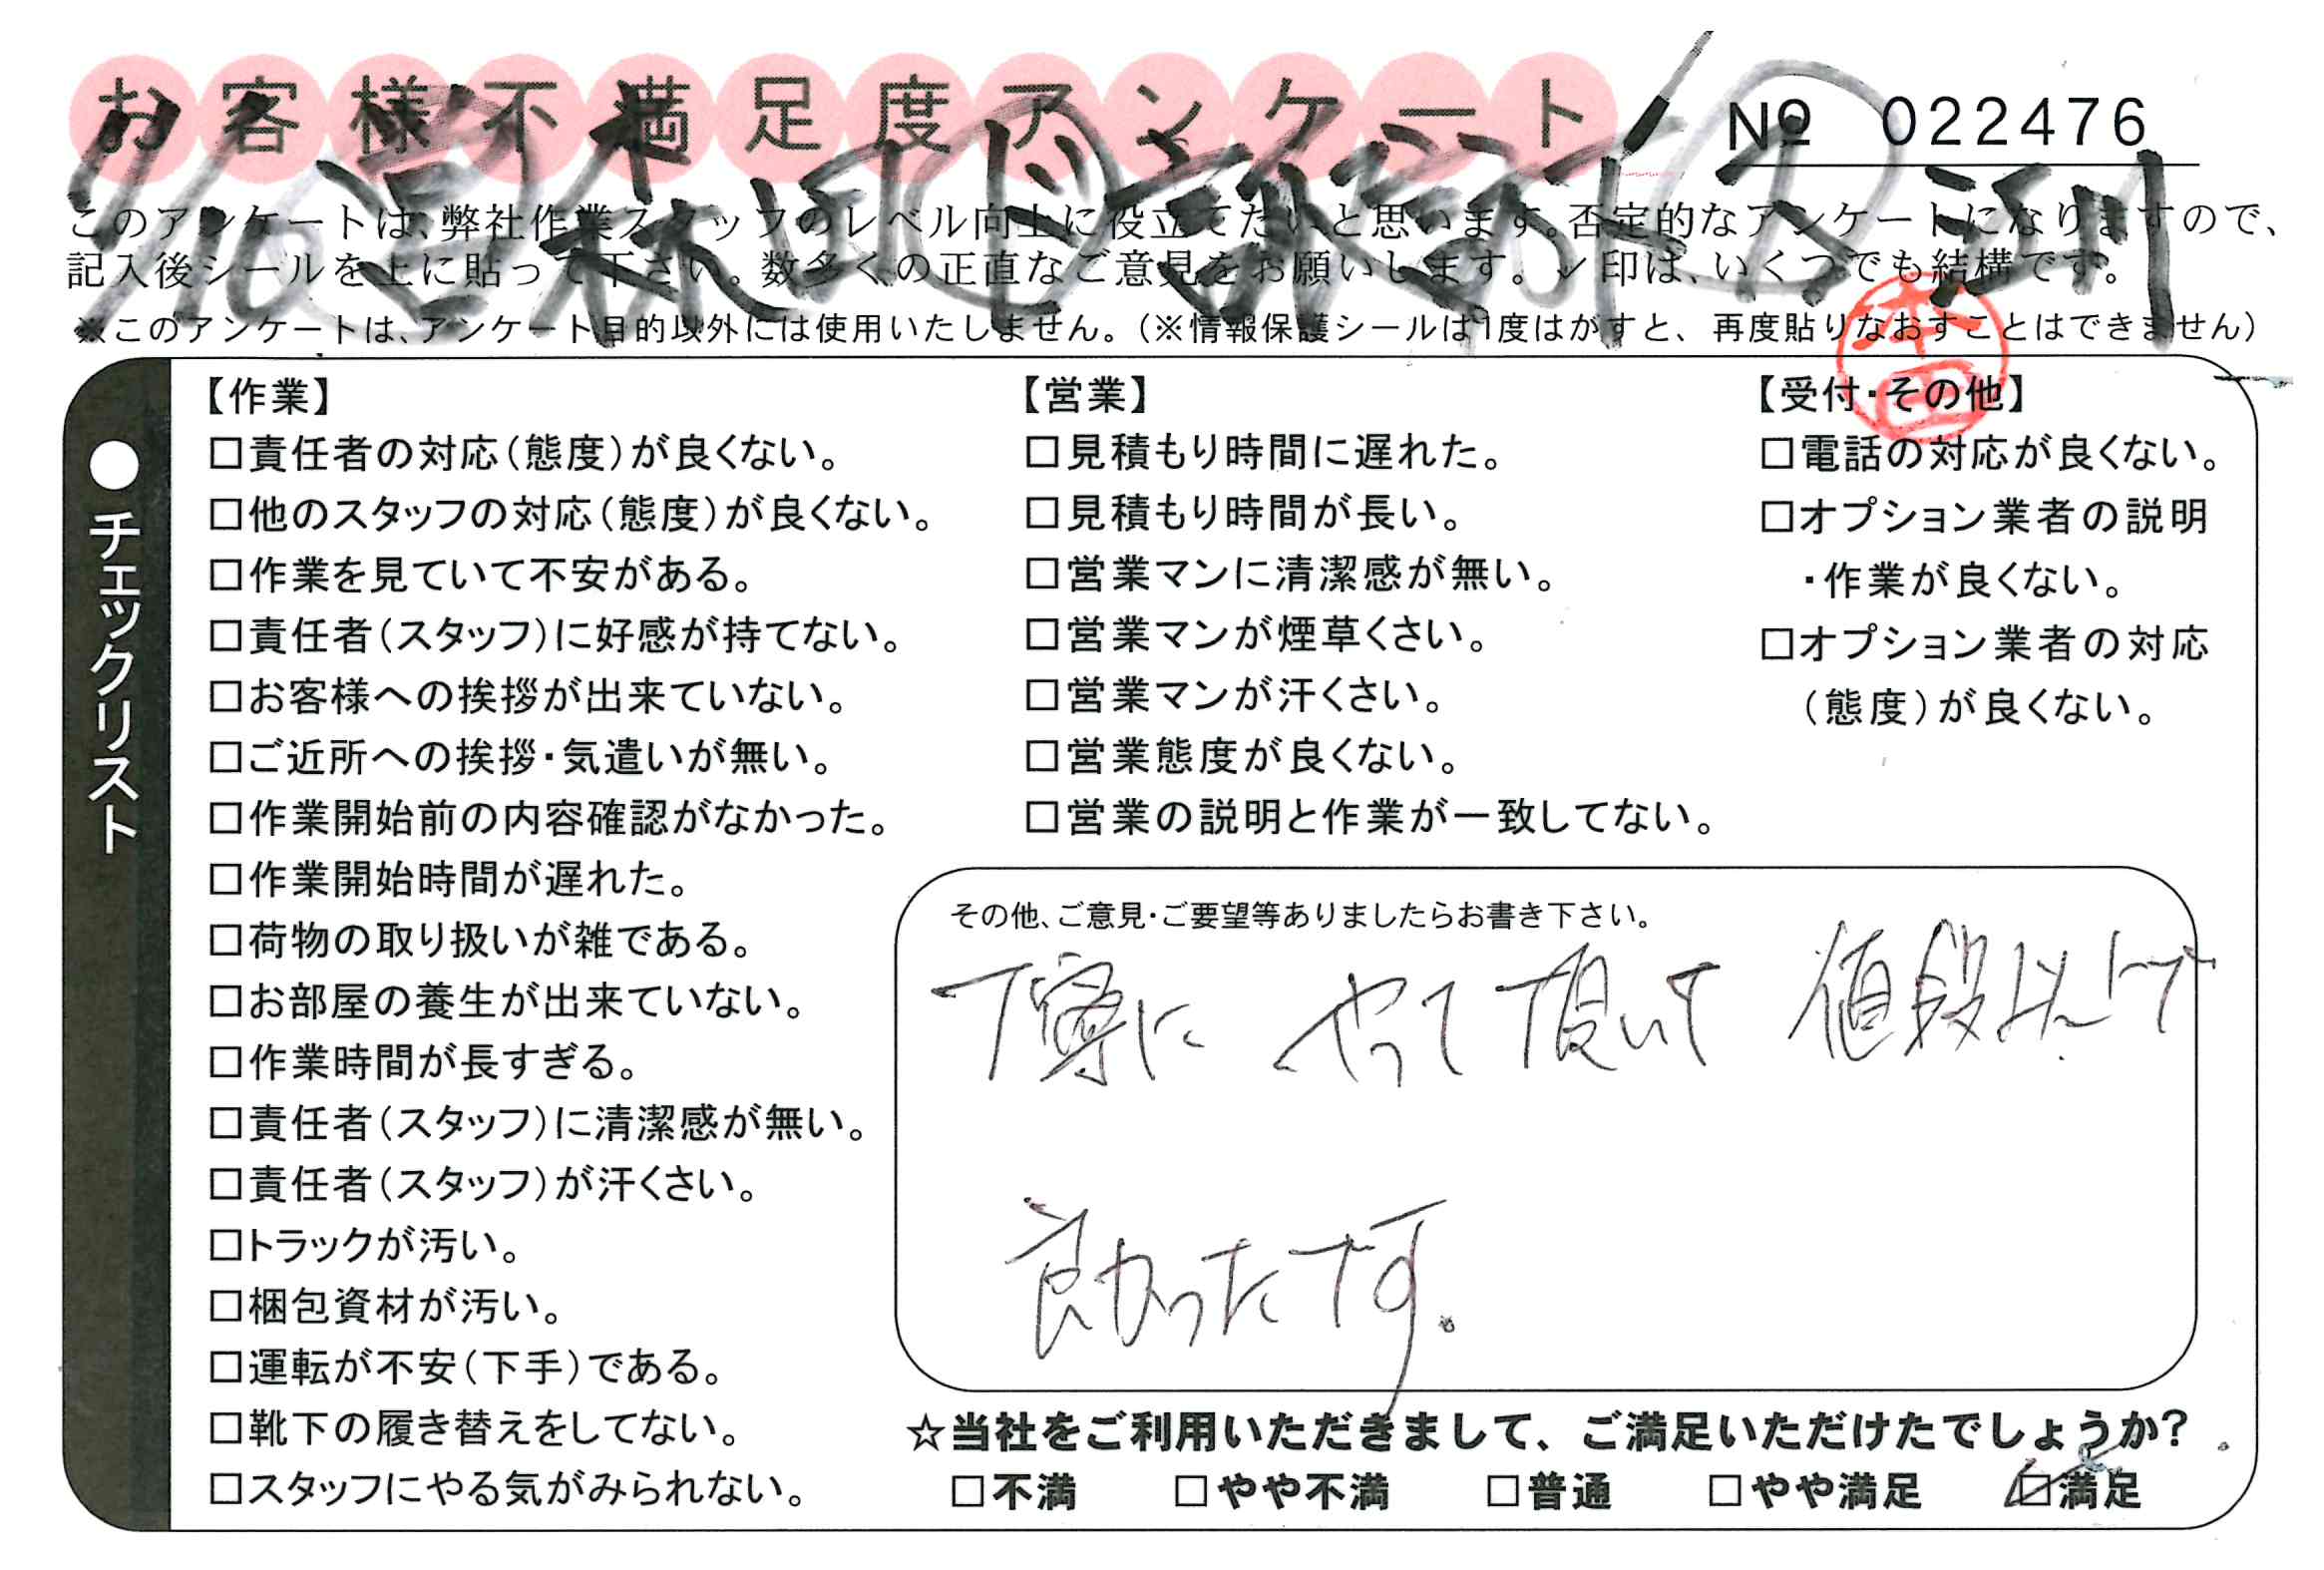 お客様不満足度アンケート
№ 022476
このアンケートは、弊社作業スタッフのレベル向上に役立てたいと思います。否定的なアンケートになりますので、
記入後シールを上に貼って下さい。数多くの正直なご意見をお願いします。✓印は、いくつでも結構です。
※このアンケートは、アンケート目的以外には使用いたしません。(※情報保護シールは1度はがすと、再度貼りなおすことはできません)
●チェックリスト
【作業】
□責任者の対応(態度)が良くない。
□他のスタッフの対応(態度)が良くない。
□作業を見ていて不安がある。
□責任者(スタッフ)に好感が持てない。
□お客様への挨拶が出来ていない。
□ご近所への挨拶・気遣いが無い。
□作業開始前の内容確認がなかった。
□作業開始時間が遅れた。
□荷物の取り扱いが雑である。
□お部屋の養生が出来ていない。
□作業時間が長すぎる。
□責任者(スタッフ)に清潔感が無い。
□責任者(スタッフ)が汗くさい。
□トラックが汚い。
□梱包資材が汚い。
□運転が不安(下手)である。
□靴下の履き替えをしてない。
□スタッフにやる気がみられない。
【営業】
□見積もり時間に遅れた。
□見積もり時間が長い。
□営業マンに清潔感が無い。
□営業マンが煙草くさい。
□営業マンが汗くさい。
□営業態度が良くない。
□営業の説明と作業が一致してない。
【受付・その他】
□電話の対応が良くない。
□オプション業者の説明
・作業が良くない。
□オプション業者の対応
(態度)が良くない。
その他、ご意見・ご要望等ありましたらお書き下さい。
丁寧に やって頂いて 値段以上で
良かったです。
☆当社をご利用いただきまして、ご満足いただけたでしょうか?
□不満 □やや不満 □普通 □やや満足 ☑満足